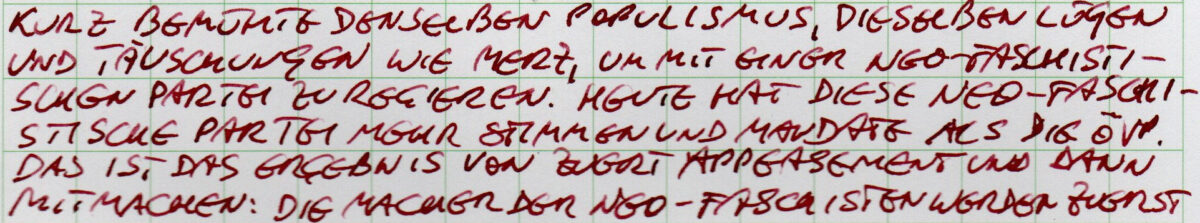 KURZ BEMÜHTE DENSELBEN POPULISMUS, DIESELBEN LÜGEN
UND TÄUSCHUNGEN WIE MERZ, UM MIT EINER NEO-FASCHISTI-
SCHEN PARTEI ZU REGIEREN. HEUTE HAT DIESE NEO-FASCHI-
STISCHE PARTEI MEHR STIMMEN UND MANDATE ALS DIE ÖVP.
DAS IST DAS ERGEBNIS VON ZUERT APPEASEMENT UND DANN
MITMACHEN: DIE MACHER DER NEO-FASCHISTEN WERDEN ZUERST